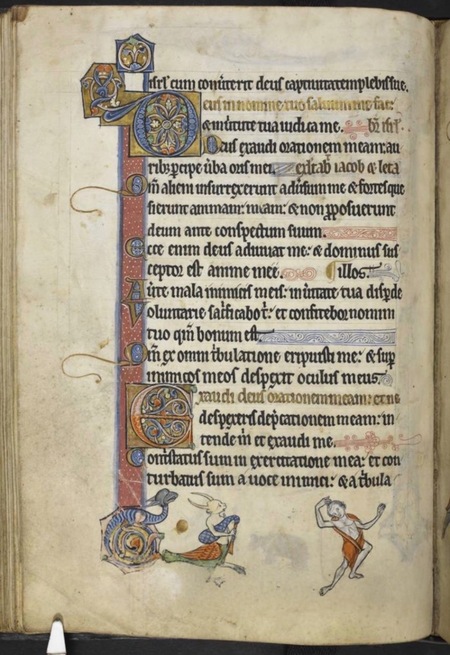 isrl' cum conuerterit deus captiuitatem plebis sue.
Deus in nomine tuo saluum me fac:
& in uirtute tua iudica me.
Deus exaudi orationem meam: au
ribus percipe uerba oris mei. exultabit iacob & leta
Qm alieni insurrexerunt aduersum me & fortes que
sierunt animam meam: & non proposuerunt
deum ante conspectum suum.
Ecce enim deus adiuuat me: & dominus sus
ceptor est anime mee. illos.
Auerte mala inimicis meis: in ueritate tua disperde
Voluntarie sacrificabo t: et confitebor nomini
tuo qm bonum est.
Qm ex omni tribulatione eripuisti me: & super
inimicos meos despexit oculus meus.
Exaudi deus orationem meam: et ne
despexeris deprecationem meam: in
tende m et exaudi me.
Contristatus sum in exercitatione mea: et con
turbatus sum a uoce inimici: & a tribula